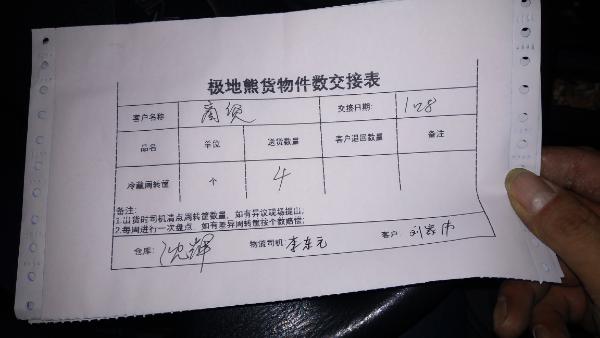 极地熊货物件数交接表
客户名称 交接日期: 1.28
品名 单位 送货数量 客户退回数量 备注
冷藏周转筐 个 4
备注:
1.出货时司机清点周转筐数量，如有异议现场提出;
2.每周进行一次盘点，如有差异周转筐按个数赔偿;
仓库: 沈辉 物流司机 李东元 客户: